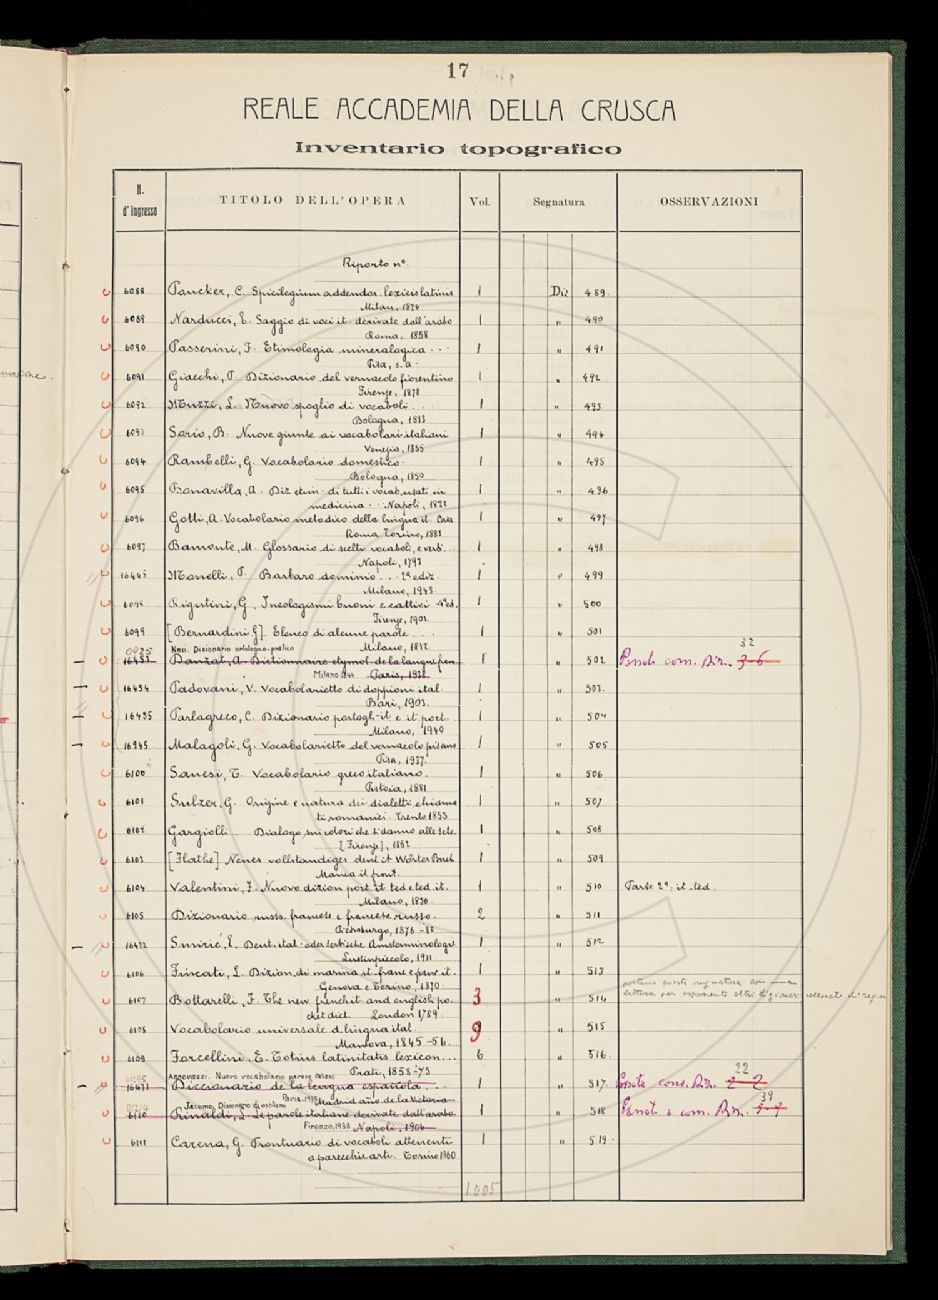 17
REALE ACCADEMIA DELLA CRUSCA
Inventario topografico
N. d'Ingresso TITOLO DELL'OPERA Vol. Segnatura OSSERVAZIONI
Riporto nº.
6088 Paucker, C. Spicilegium addendor. lexicis latinis 1 Diz 489.
Milau, 1874
6089 Narducci, E. Saggio di voci it. derivate dall'arabo 1 " 490
Roma, 1858
6090 Passerini, F. Etimologia mineralogica . . . 1 " 491
Pisa, s.a.
6091 Giacchi, P. Dizionario del vernacolo fiorentino 1 " 492
Firenze, 1878
6092 Muzzi, L. Nuovo spoglio di vocaboli . . . 1 " 493
Bologna, 1813
6093 Sorio, B. Nuove giunte ai vocabolari italiani 1 " 494
Venezia, 1855
6094 Rambelli, G. Vocabolario domestico. 1 " 495
Bologna, 1850
6095 Bonavilla, A. Diz. etim. di tutti i vocab. usati in 1 " 496
medicina . . Napoli, 1822
6096 Gotti, A. Vocabolario metodico della lingua it. Casa 1 " 497
Roma Torino, 1883
6097 Bamonte, M. Glossario di scelti vocaboli, e verbi . . 1 " 498
Napoli, 1793
16445 Monelli, P. Barbaro dominio . . . 2ª ediz. 1 " 499
Milano, 1943
6098 Rigutini, G. I neologismi buoni e cattivi 4ª ed. 1 " 500
Firenze, 1902
6099 [Bernardini G]. Elenco di alcune parole . . . 1 " 501
Milano, 1812
0925 Nesi. Dizionario ortologico-pratico
16453 Dauzat, A. Dictionnaire etymol. de la langue fran 1 " 502 Posseduto com. Diz. 36 32
Milano 1944 Paris, 1938
16454 Padovani, V. Vocabolarietto di doppioni ital. 1 " 503.
Bari, 1903.
16455 Parlagreco, C. Dizionario portogh-it e it port. 1 " 504
Milano, 1940
16945 Malagoli, G. Vocabolarietto del vernacolo pisano 1 " 505
Pisa, 1937.
6100 Sanesi, T. Vocabolario greco italiano. 1 " 506
Pistoia, 1881
6101 Sulzer, G. Origine e natura dei dialetti chiama 1 " 507
ti romanici. Trento 1855
6102 Gargiolli. Dialogo sui colori che si danno alle sete 1 " 508
[Firenze], 1862
6103 [Flathe] Neues vollstandiges deut it Wörter Buch 1 " 509
Manca il front.
6104 Valentini, F. Nuovo dizion port. it ted e ted. it. 1 " 510 Parte 2ª: it. ted.
Milano, 1836
6105 Dizionario russo francese e francese russo. 2 " 511
Pietroburgo, 1876-80
16472 Smirić, E. Deut. ital. oder serbische Amsterminologie 1 " 512
Lussinpiccolo, 1911
6106 Fincati, L. Dizion. di marina it-franc e franc it. 1 " 513
Genova e Torino, 1870
6107 Bottarelli, F. The new french it. and english po- 3 " 514
cket dict. London 1789
6108 Vocabolario universale d. lingua ital. 9 " 515
Mantova, 1845-56.
6109 Forcellini, E. Totius latinitatis lexicon . . . 6 " 516.
Prati, 1858-75
Annovazzi. Nuovo vocabolario pavese italiano
16471 Diccionario de la lengua española . . . 1 " 517. com. Diz. 22
Pavia, 1935 Madrid año de la Victoria
Jacomo, Dizionario di esotismi
6110 Rinaldi, L. Le parole italiane derivate dall'arabo 1 " 518 com. Diz. 39
Firenze, 1938 Napoli, 1906
6111 Carena, G. Prontuario di vocaboli attenenti 1 " 519.
a parecchie arti. Torino 1860
1005